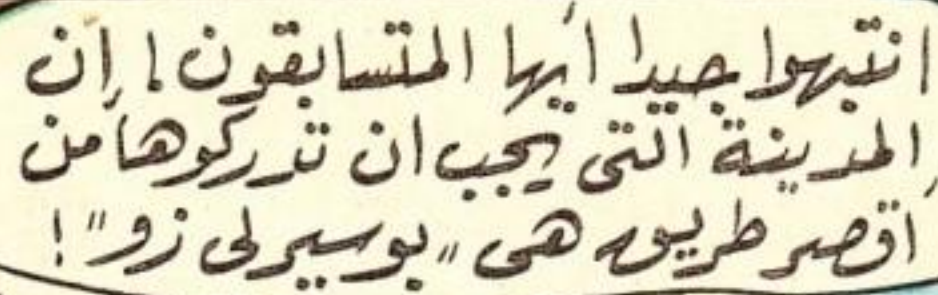 انتبهوا جيدا أيها المتسابقون! إن
المدينة التي يجب ان تدركوها من
اقصر طريق هى "بوسيرلى زو"!